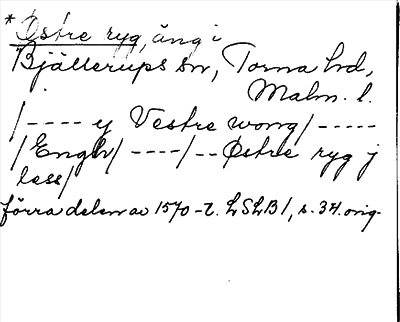 * Østre ryg, äng i
Bjällerups sn, Torna hrd,
Malm. l.
/---- y Vestre wong/-----
/Engh/ ----/--Østre ryg j
less/
förra delen av 1570-t. LSLB1, s. 34. orig.